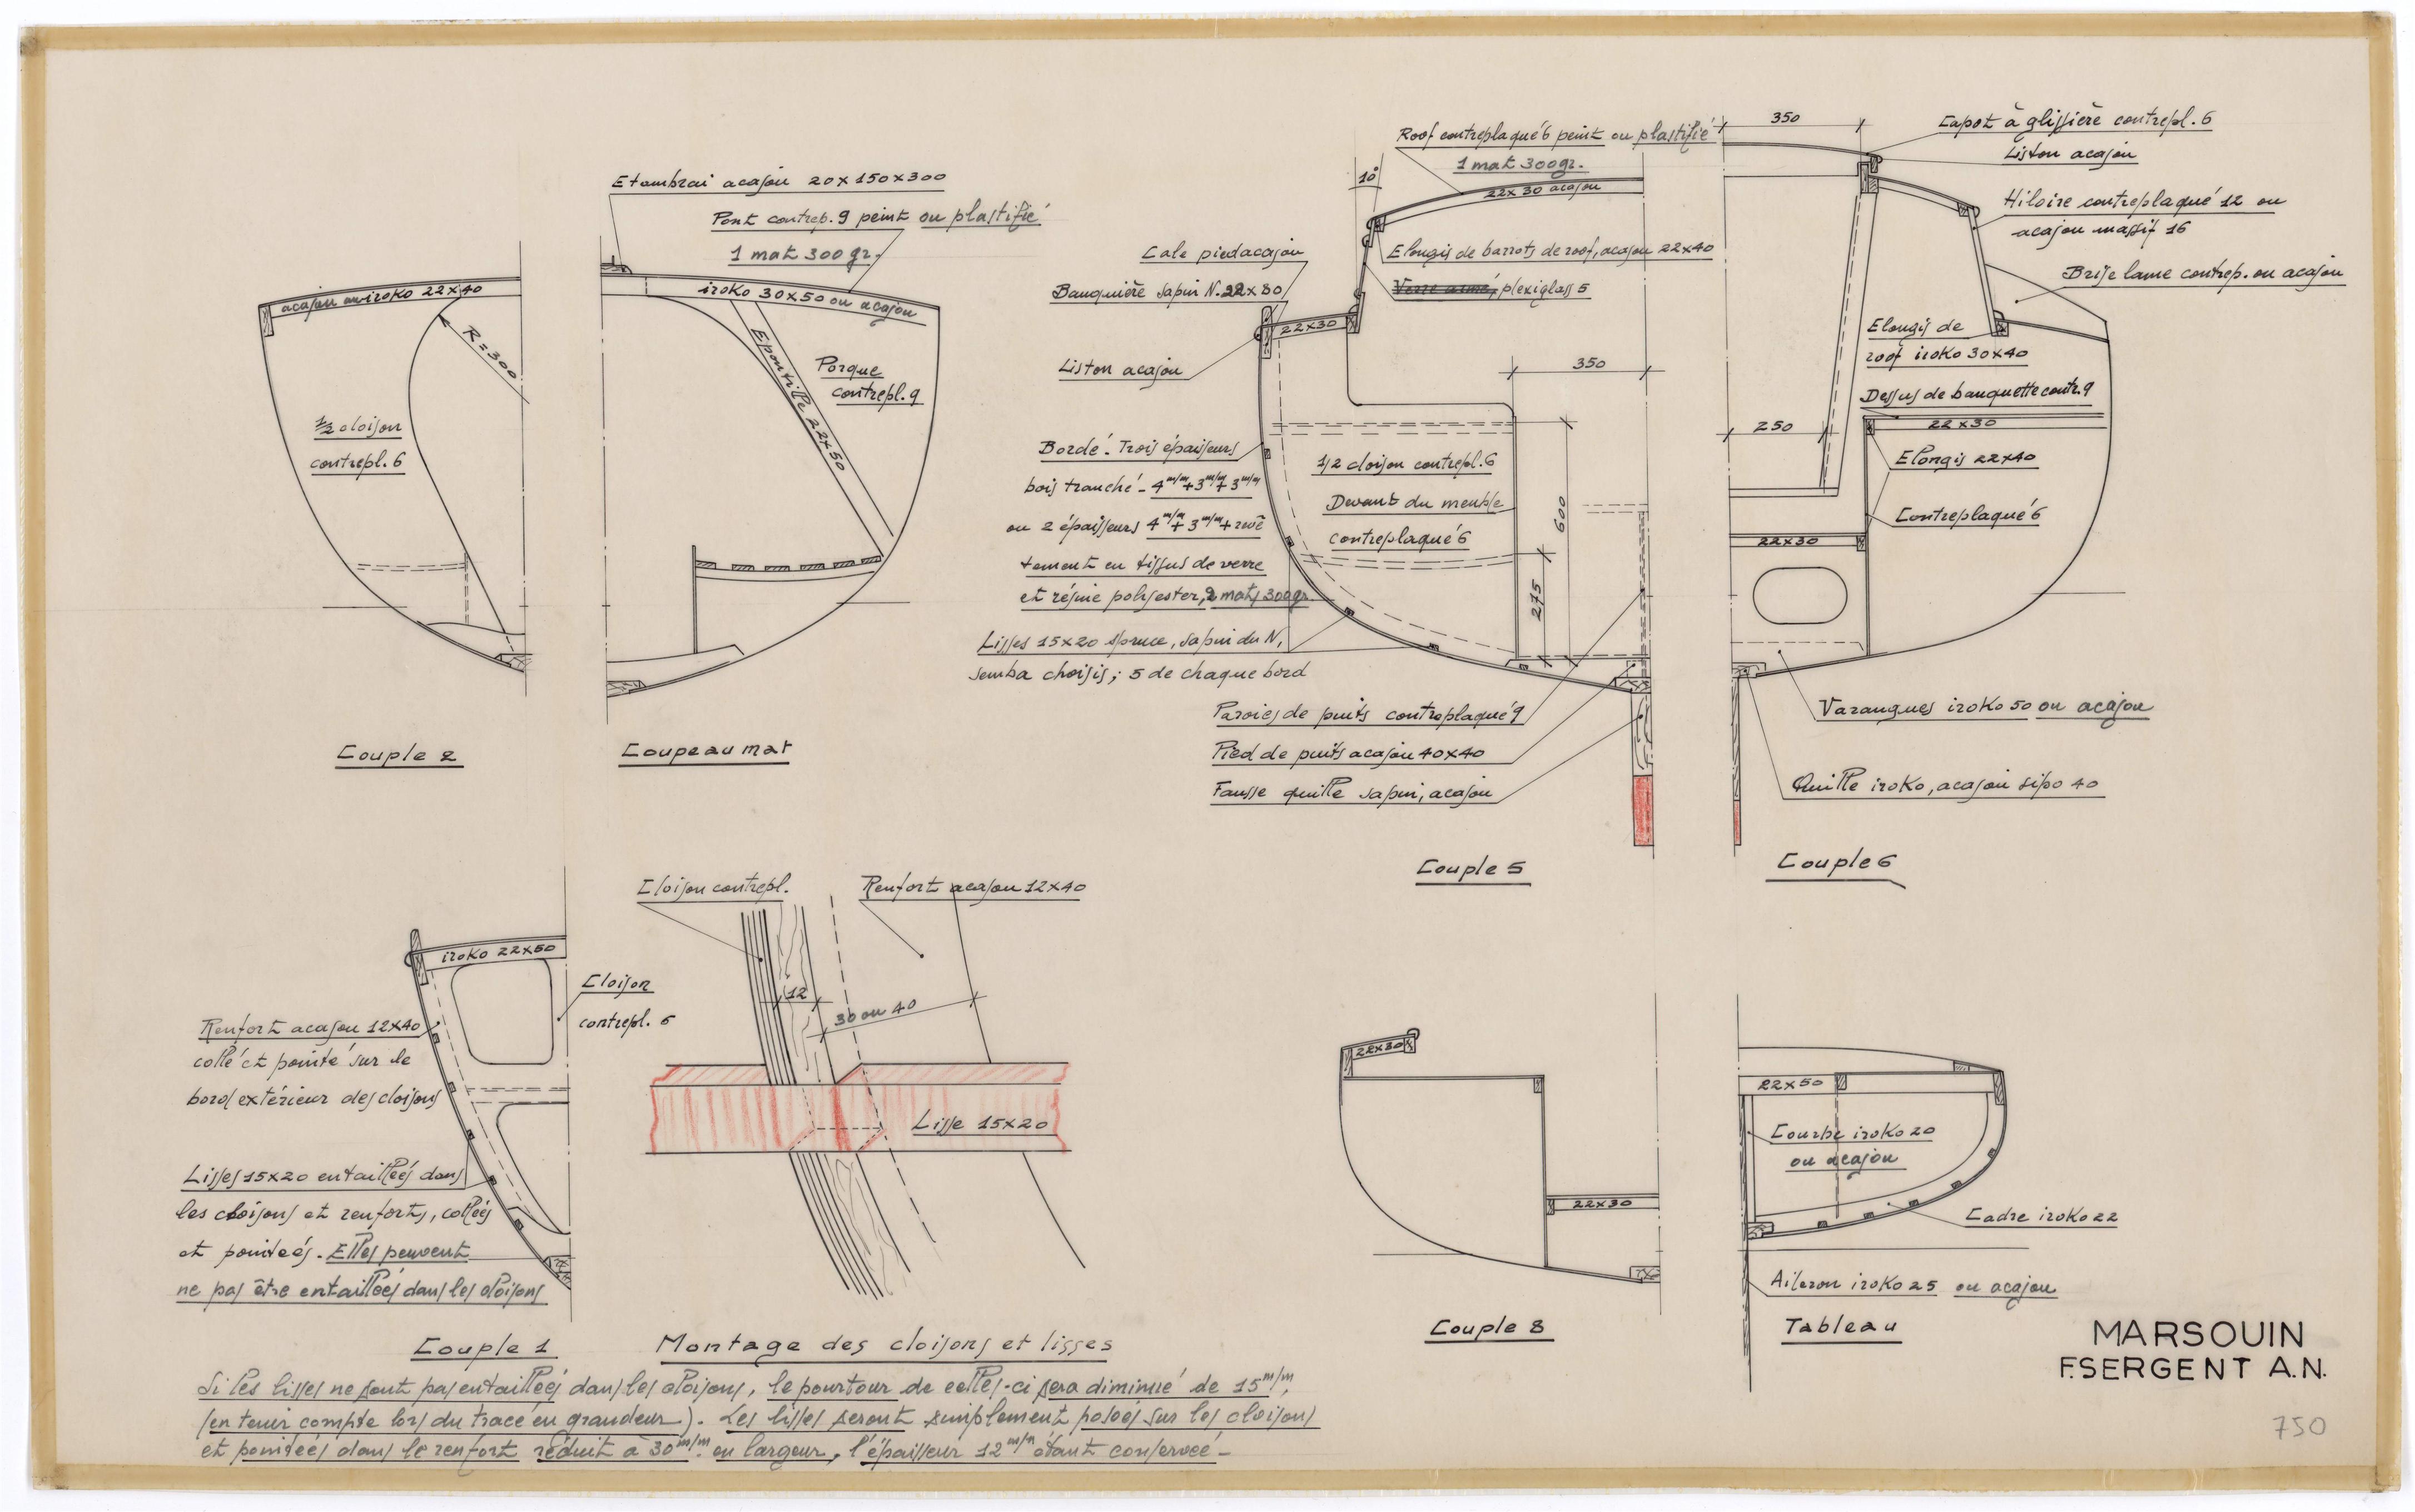 Etambrai acajou 20x150x300
Pont contrep. 9 peint ou plastifié
1 mat 300 gr.
acajou ou iroko 22x40
R=300
1/2 cloison
contrepl. 6
iroko 30x50 ou acajou
Epontille 22x50
Porque
contrepl. 9
Couple 2
Coupe au mat
Roof contreplaqué 6 peint ou plastifié
1 mat 300gr.
10°
22x30 acajou
Cale pied acajou
Banquière sapin N. 22x80
Elongis de barrots de roof, acajou 22x40
Verre armé, plexiglass 5
22x30
Liston acajou
350
Bordé. Trois épaisseurs
bois tranché - 4m/m + 3m/m + 3m/m
ou 2 épaisseurs 4m/m + 3m/m + revê
tement en tissus de verre
et résine polyester, 2 mats 300gr
Lisses 15x20 spruce, sapin du N,
semba choisis; 5 de chaque bord
1/2 cloison contrepl. 6
Devant du meuble
contreplaqué 6
600
275
Paroies de puits contreplaqué 9
Pied de puits acajou 40x40
Fausse quille sapin, acajou
Couple 5
350
Capot à glissière contrepl. 6
Liston acajou
Hiloire contreplaqué 12 ou
acajou massif 16
Brise lame contrep. ou acajou
Elongis de
roof iroko 30x40
Dessus de banquette contr. 9
250
22x30
Elongis 22x40
Contreplaqué 6
22x30
Varangues iroko 50 ou acajou
Quille iroko, acajou sipo 40
Couple 6
iroko 22x50
Cloison
contrepl. 6
Renfort acajou 12x40
collé et pointé sur le
bord extérieur des cloisons
Lisses 15x20 entaillées dans
les cloisons et renforts, collées
et pointeés. Elles peuvent
ne pas être entaillées dans les cloisons
Couple 1
Cloison contrepl.
Renfort acajou 12x40
12
30 ou 40
Lisse 15x20
Montage des cloisons et lisses
Si les lisses ne sont pas entaillées dans les cloisons, le pourtour de celles-ci sera diminué de 15m/m,
(en tenir compte lors du tracé en grandeur). Les lisses seront simplement posées sur les cloisons
et pointeés dans le renfort réduit à 30m/m en largeur, l'épaisseur 12m/m étant conservée -
22x30
22x30
Couple 8
22x50
Courbe iroko 20
ou acajou
Cadre iroko 22
Aileron iroko 25 ou acajou
Tableau
MARSOUIN
F.SERGENT A.N.
750